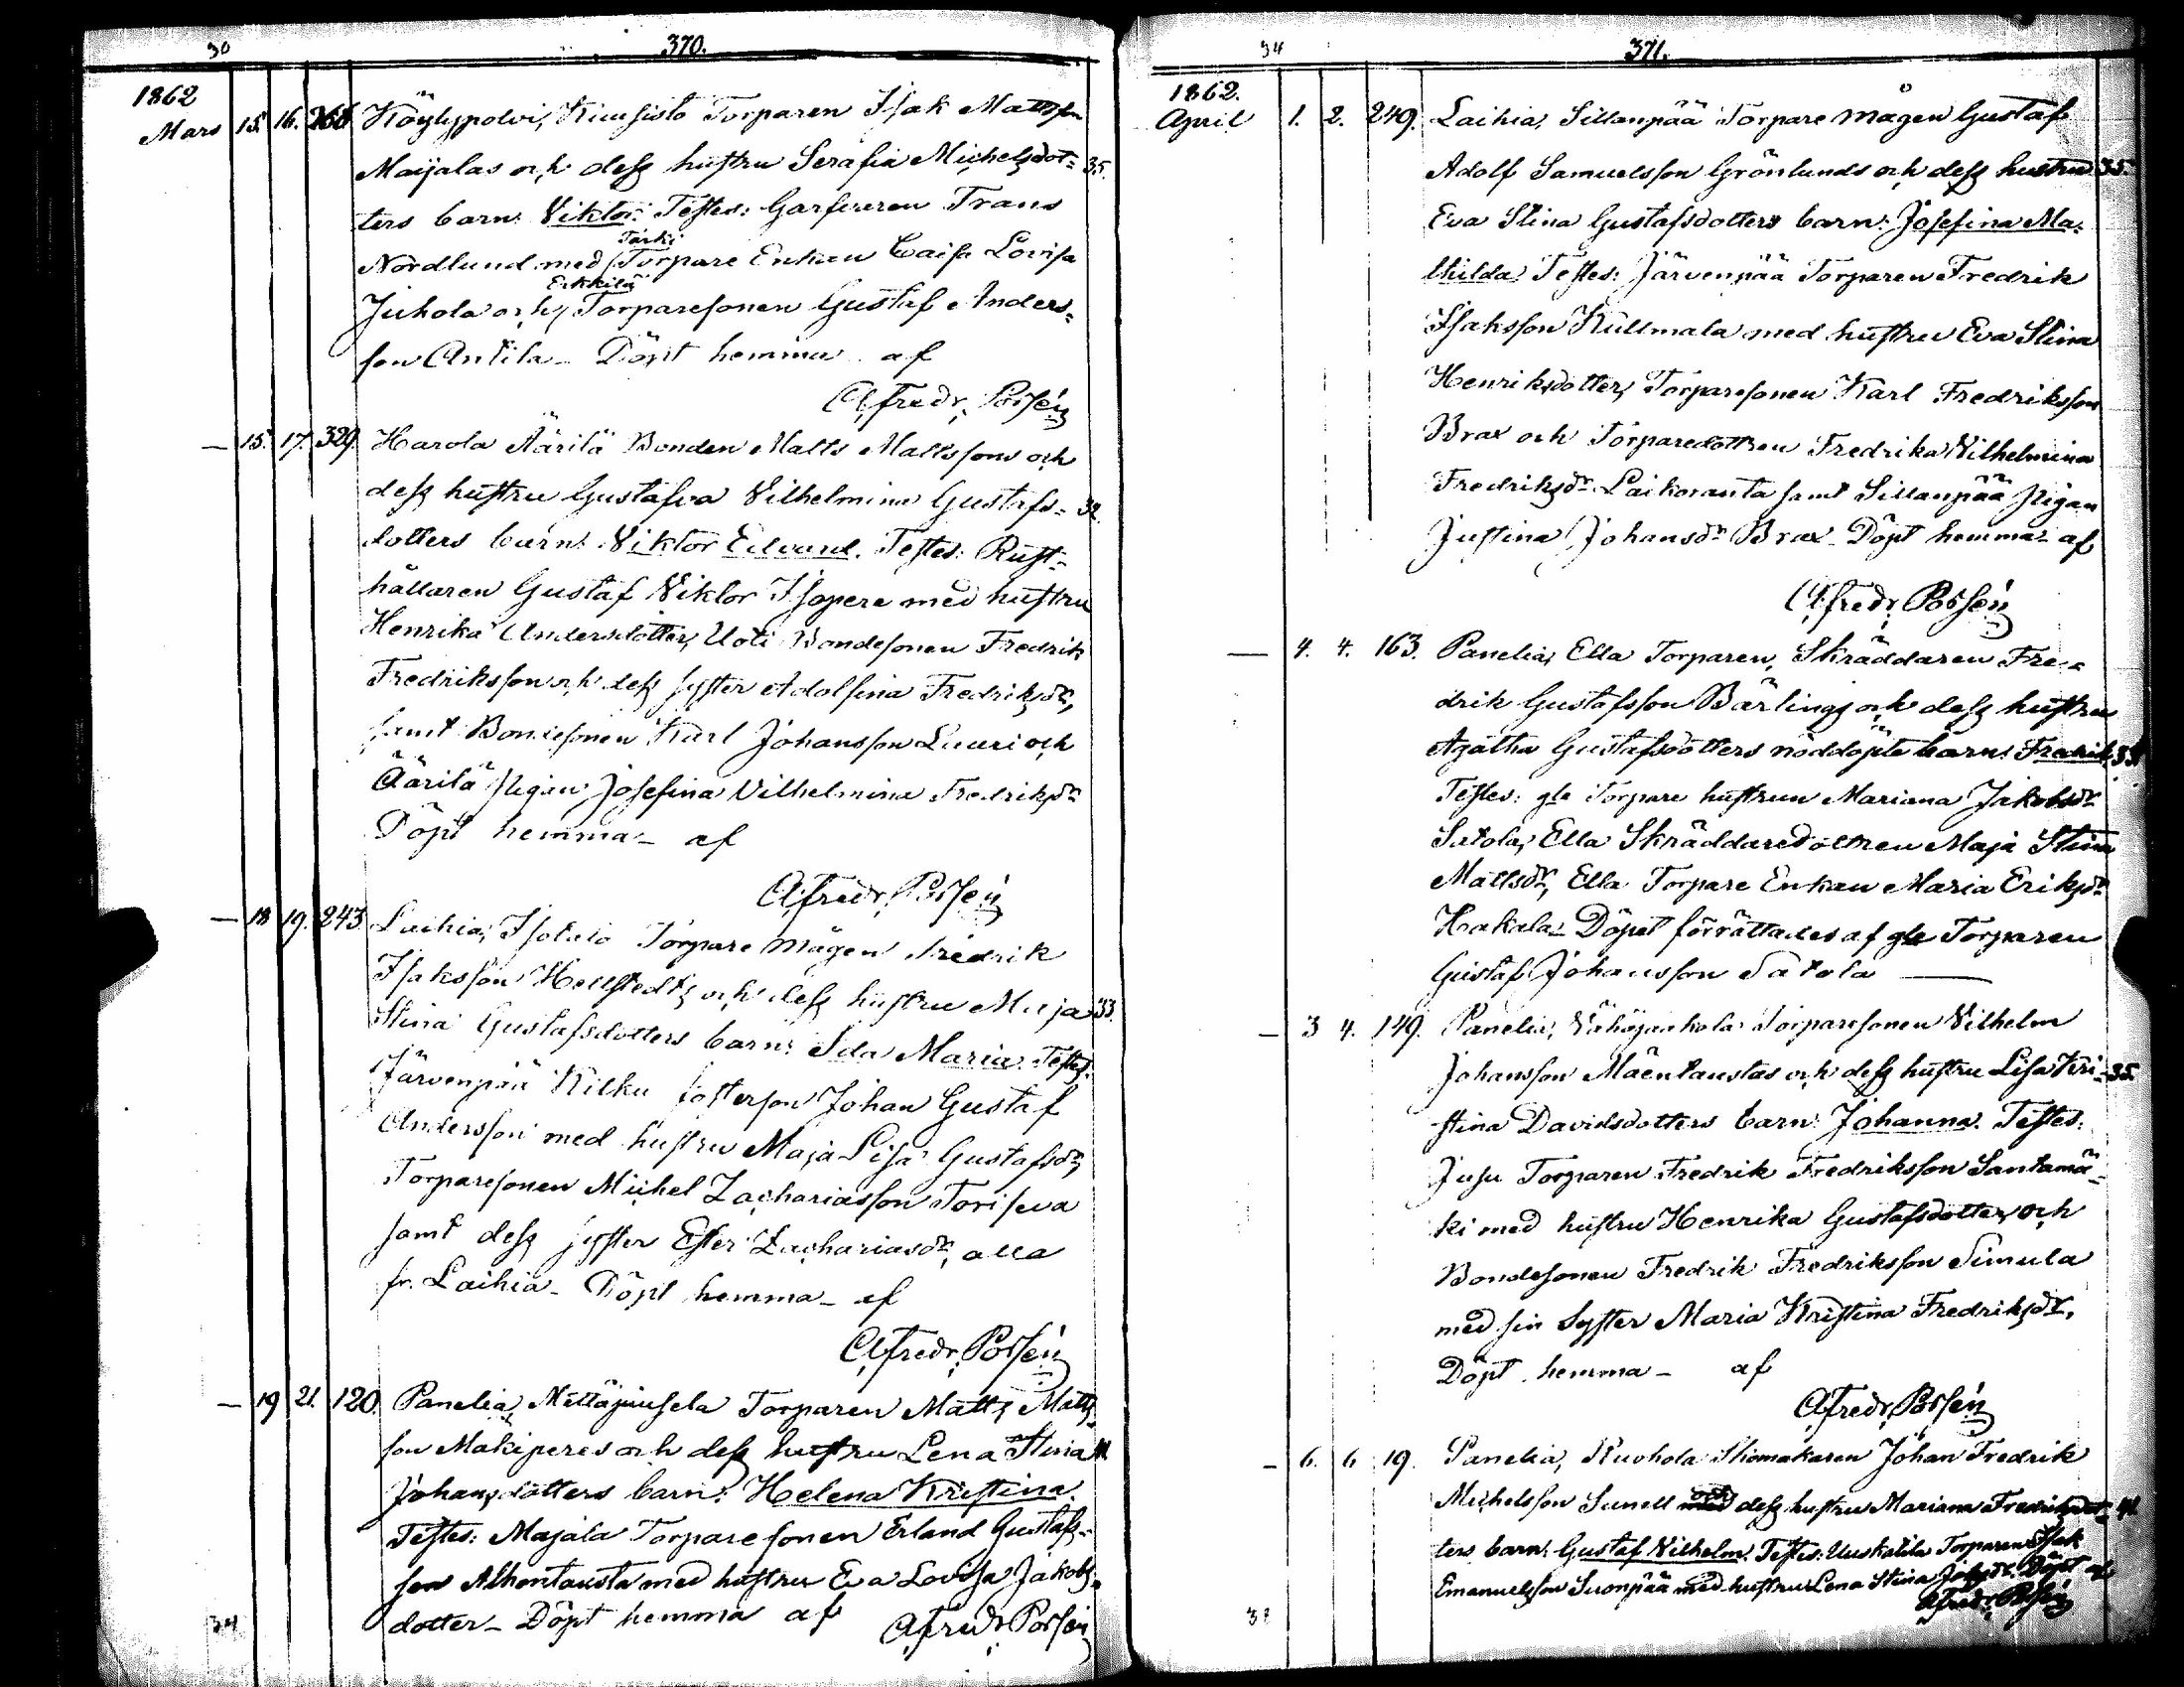 30 370.
1862
Mars 15. 16. 266. Köylypolvi, Kuusisto Torparen Isak Mattsson
Maijalas och dess hustru Serafia Michelsdot= 35.
ters barn: Viktor. Testes: Garfveren Frans
Tarki
Nordlund med Torpare Enkan Caisa Lovisa
Erkkilä
Juhola och Torparesonen Gustaf Anders=
son Antila – Döpt hemma af
Alfredr. Possén
— 15. 17. 329. Harola Äärilä Bonden Matts Mattssons och
dess hustru Gustafva Vilhelmina Gustafs= 32.
dotters barn: Viktor Edvard. Testes: Rust=
hållaren Gustaf Viktor Isopere med hustru
Henrika Andersdotter, Uoti Bondesonen Fredrik
Fredriksson och dess syster Adolfina Fredriksdr,
samt Bondesonen Karl Johansson Luuri och
Äärilä Pigan Josefina Vilhelmina Fredriksdr
Döpt hemma – af
Alfredr. Possén
— 18 19. 243. Laihia, Isotalo Torpare mågen Fredrik
Isaksson Hellstedts och dess hustru Maja 33.
Stina Gustafsdotters barn: Ida Maria. Testes:
Järvenpää Kilku fosterson Johan Gustaf
Andersson med hustru Maja Lisa Gustafsdr,
Torparesonen Michel Zachariasson Toriseva
samt dess syster Ester Zachariasdr, alla
fr. Laihia – Döpt hemma – af
Alfredr. Possén
— 19 21. 120. Panelia, Mettäjuusela Torparen Matts Matts=
son Makiperes och dess hustru Lena Stina 41
Johansdotters barn: Helena Kristina.
Testes: Majala Torparesonen Erland Gustafs=
son Alhontausta med hustru Eva Lovisa Jakobs=
dotter – Döpt hemma af Alfredr Possén
34
34 371.
1862.
April 1. 2. 249. Laihia, Sillanpää Torpare mågen Gustaf
Adolf Samuelsson Grönlunds och dess hustru 35.
Eva Stina Gustafsdotters barn: Josefina Ma=
thilda. Testes: Järvenpää Torparen Fredrik
Isaksson Kullmala med hustru Eva Stina
Henriksdotter, Torparesonen Karl Fredriksson
Brax och Torparedottren Fredrika Vilhelmina
Fredriksdr Laikoranta samt Sillanpää Pigan
Justina Johansdr Brax – Döpt hemma – af
Alfredr. Possén
— 4. 4. 163. Panelia, Ella Torparen, Skräddaren Fre=
drik Gustafsson Bärlings och dess hustru
Agatha Gustafsdotters nöddöpte barn: Fredrik 39.
Testes: gle Torpare hustrun Mariana Jakobsdr
Satola, Ella Skräddaredottren Maja Stina
Mattsdr, Ella Torpare Enkan Maria Eriksdr
Hakala – Döpet förrättades af gle Torparen
Gustaf Johansson Satola —
— 3 4. 149. Panelia, Vähäjaakola Torparesonen Vilhelm
Johansson Mäentaustas och dess hustru Lisa Kri= 35.
stina Davidsdotters barn: Johanna. Testes:
Jusu Torparen Fredrik Fredriksson Santamä=
ki med hustru Henrika Gustafsdotter, och
Bondesonen Fredrik Fredriksson Simula
med sin syster Maria Kristina Fredriksdr,
Döpt hemma – af
Alfredr. Possén
— 6. 6 19. Panelia, Ruohola Skomakaren Johan Fredrik
och
Michelsson Sunell med dess hustru Mariana Fredriksdot= 41.
ters barn: Gustaf Vilhelm. Testes: Uuskatila Torparen Isak
Emanuelsson Suonpää med hustru Lena Stina Döpt af
Alfredr. Possén
38